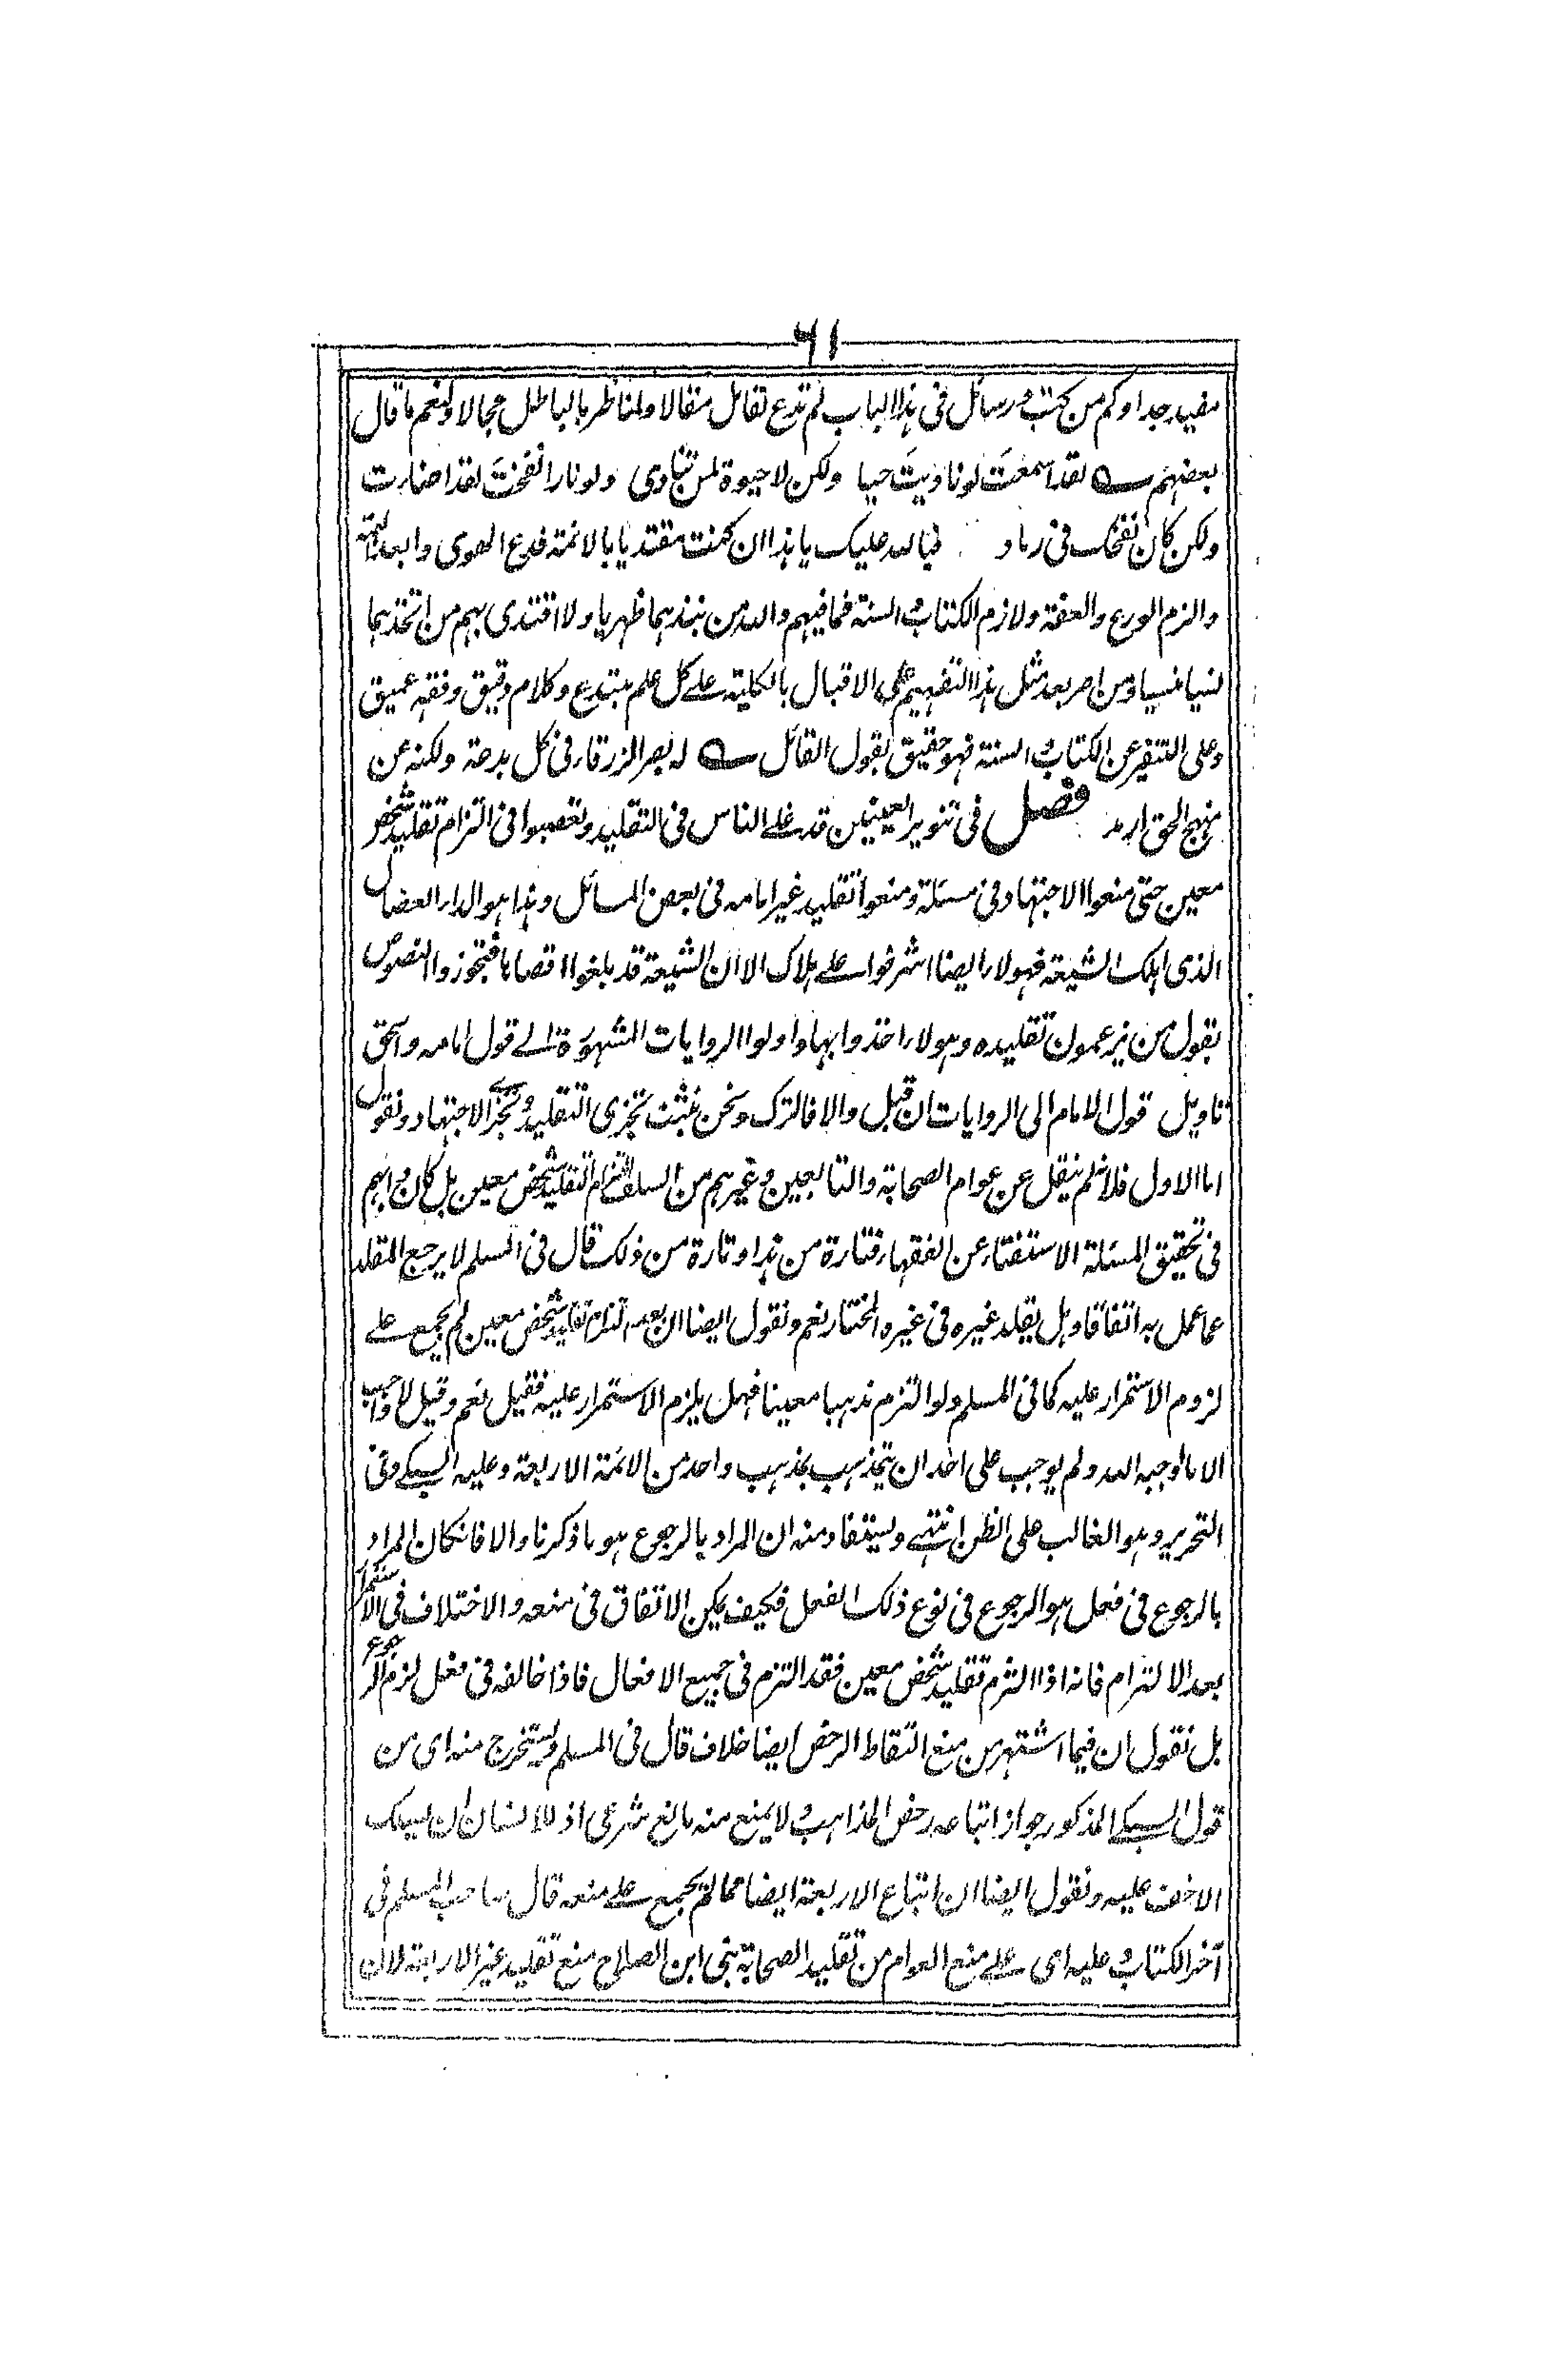 ٦١
مفيد جدا وكم من كتب ورسائل في هذا الباب لم تدع لقائل مقالا ولمناظر بالباطل مجالا ولنعم ما قال
بعضهم لقد اسمعت لو ناديت حيا ولكن لا حيوة لمن تنادى ولو نارا نفخت لقد اضاءت
ولكن كان نفخك في رماد فيا لله عليك يا هذا ان كنت مقتديا بالائمة فدع الهوى وابعد
والزم الورع والعفة ولازم الكتاب والسنة فما فيهم والله من نبذهما ظهريا ولا اقتدى بهم من اتخذهما
نسيا منسيا ومن اصر بعد مثل هذا التفهيم على الاقبال بالكلية على كل علم مبتدع وكلام دقيق وفقه عميق
وعلى التنفير عن الكتاب والسنة فهو حقيق بقول القائل له بصر الزرقاء في كل بدعة ولكنه عن
منهج الحق ارمد فصل في تنوير العينين قد غلى الناس في التقليد وتعصبوا في التزام تقليد شخص
معين حتى منعوا الاجتهاد في مسئلة ومنعوا تقليد غير امامه في بعض المسائل وهذا هو الداء العضال
الذي اهلك الشيعة فهولاء ايضا اشرفوا على هلاك الا ان الشيعة قد بلغوا اقصاها فتجوزوا النصوص
بقول من يزعمون تقليده وهولاء اخذوا بها واولوا الروايات المشهورة الى قول امامه والحق
تاويل قول الامام الى الروايات ان قبل والا فالترك ونحن نثبت تجزي التقليد وتجزي الاجتهاد ونقول
اما الاول فلانه لم ينقل عن عوام الصحابة والتابعين وغيرهم من السلف التزام تقليد شخص معين بل كان دابهم
في تحقيق المسئلة الاستفتاء عن الفقهاء فتارة من هذا وتارة من ذلك قال في المسلم لا يرجع المقلد
عما عمل به اتفاقا وهل يقلد غيره في غيره المختار نعم ونقول ايضا ان بعد التزام تقليد شخص معين لم يجمع على
لزوم الاستمرار عليه كما في المسلم ولو التزم مذهبا معينا فهل يلزم الاستمرار عليه فقيل نعم وقيل لا واجب
الا ما اوجبه الله ولم يوجب على احد ان يتمذهب بمذهب واحد من الائمة الاربعة وعليه السبكي وفي
التحرير وهو الغالب على الظن انتهى ويستفاد منه ان المراد بالرجوع هو ما ذكرنا والا فان كان المراد
بالرجوع في فعل هو الرجوع في نوع ذلك الفعل فكيف يمكن الاتفاق في منعه والاختلاف في الاستمرار
بعد الالتزام فانه اذا التزم تقليد شخص معين فقد التزم في جميع الافعال فاذا خالفه في فعل لزم الرجوع
بل نقول ان فيما اشتهر من منع التقاط الرخص ايضا خلاف قال في المسلم ويستخرج منه اي من
قول السبكي المذكور جواز اتباعه رخص المذاهب ولا يمنع منه مانع شرعي اذ للانسان ان يسلك
الاخف عليه ونقول ايضا ان اتباع الاربعة ايضا مما لم يجمع على منعه قال صاحب المسلم في
آخر الكتاب وعليه اي على منع العوام من تقليد الصحابة بنى ابن الصلاح منع تقليد غير الاربعة لان